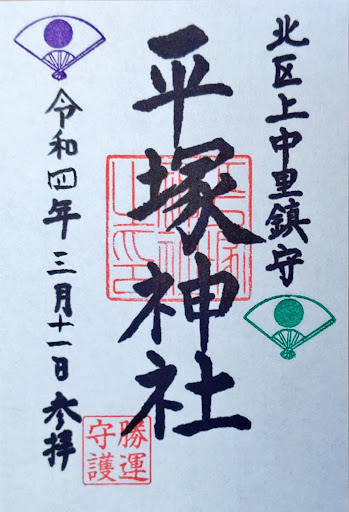 北区上中里鎮守
平塚神社
平塚神社之印
勝運守護
令和四年三月十一日参拝